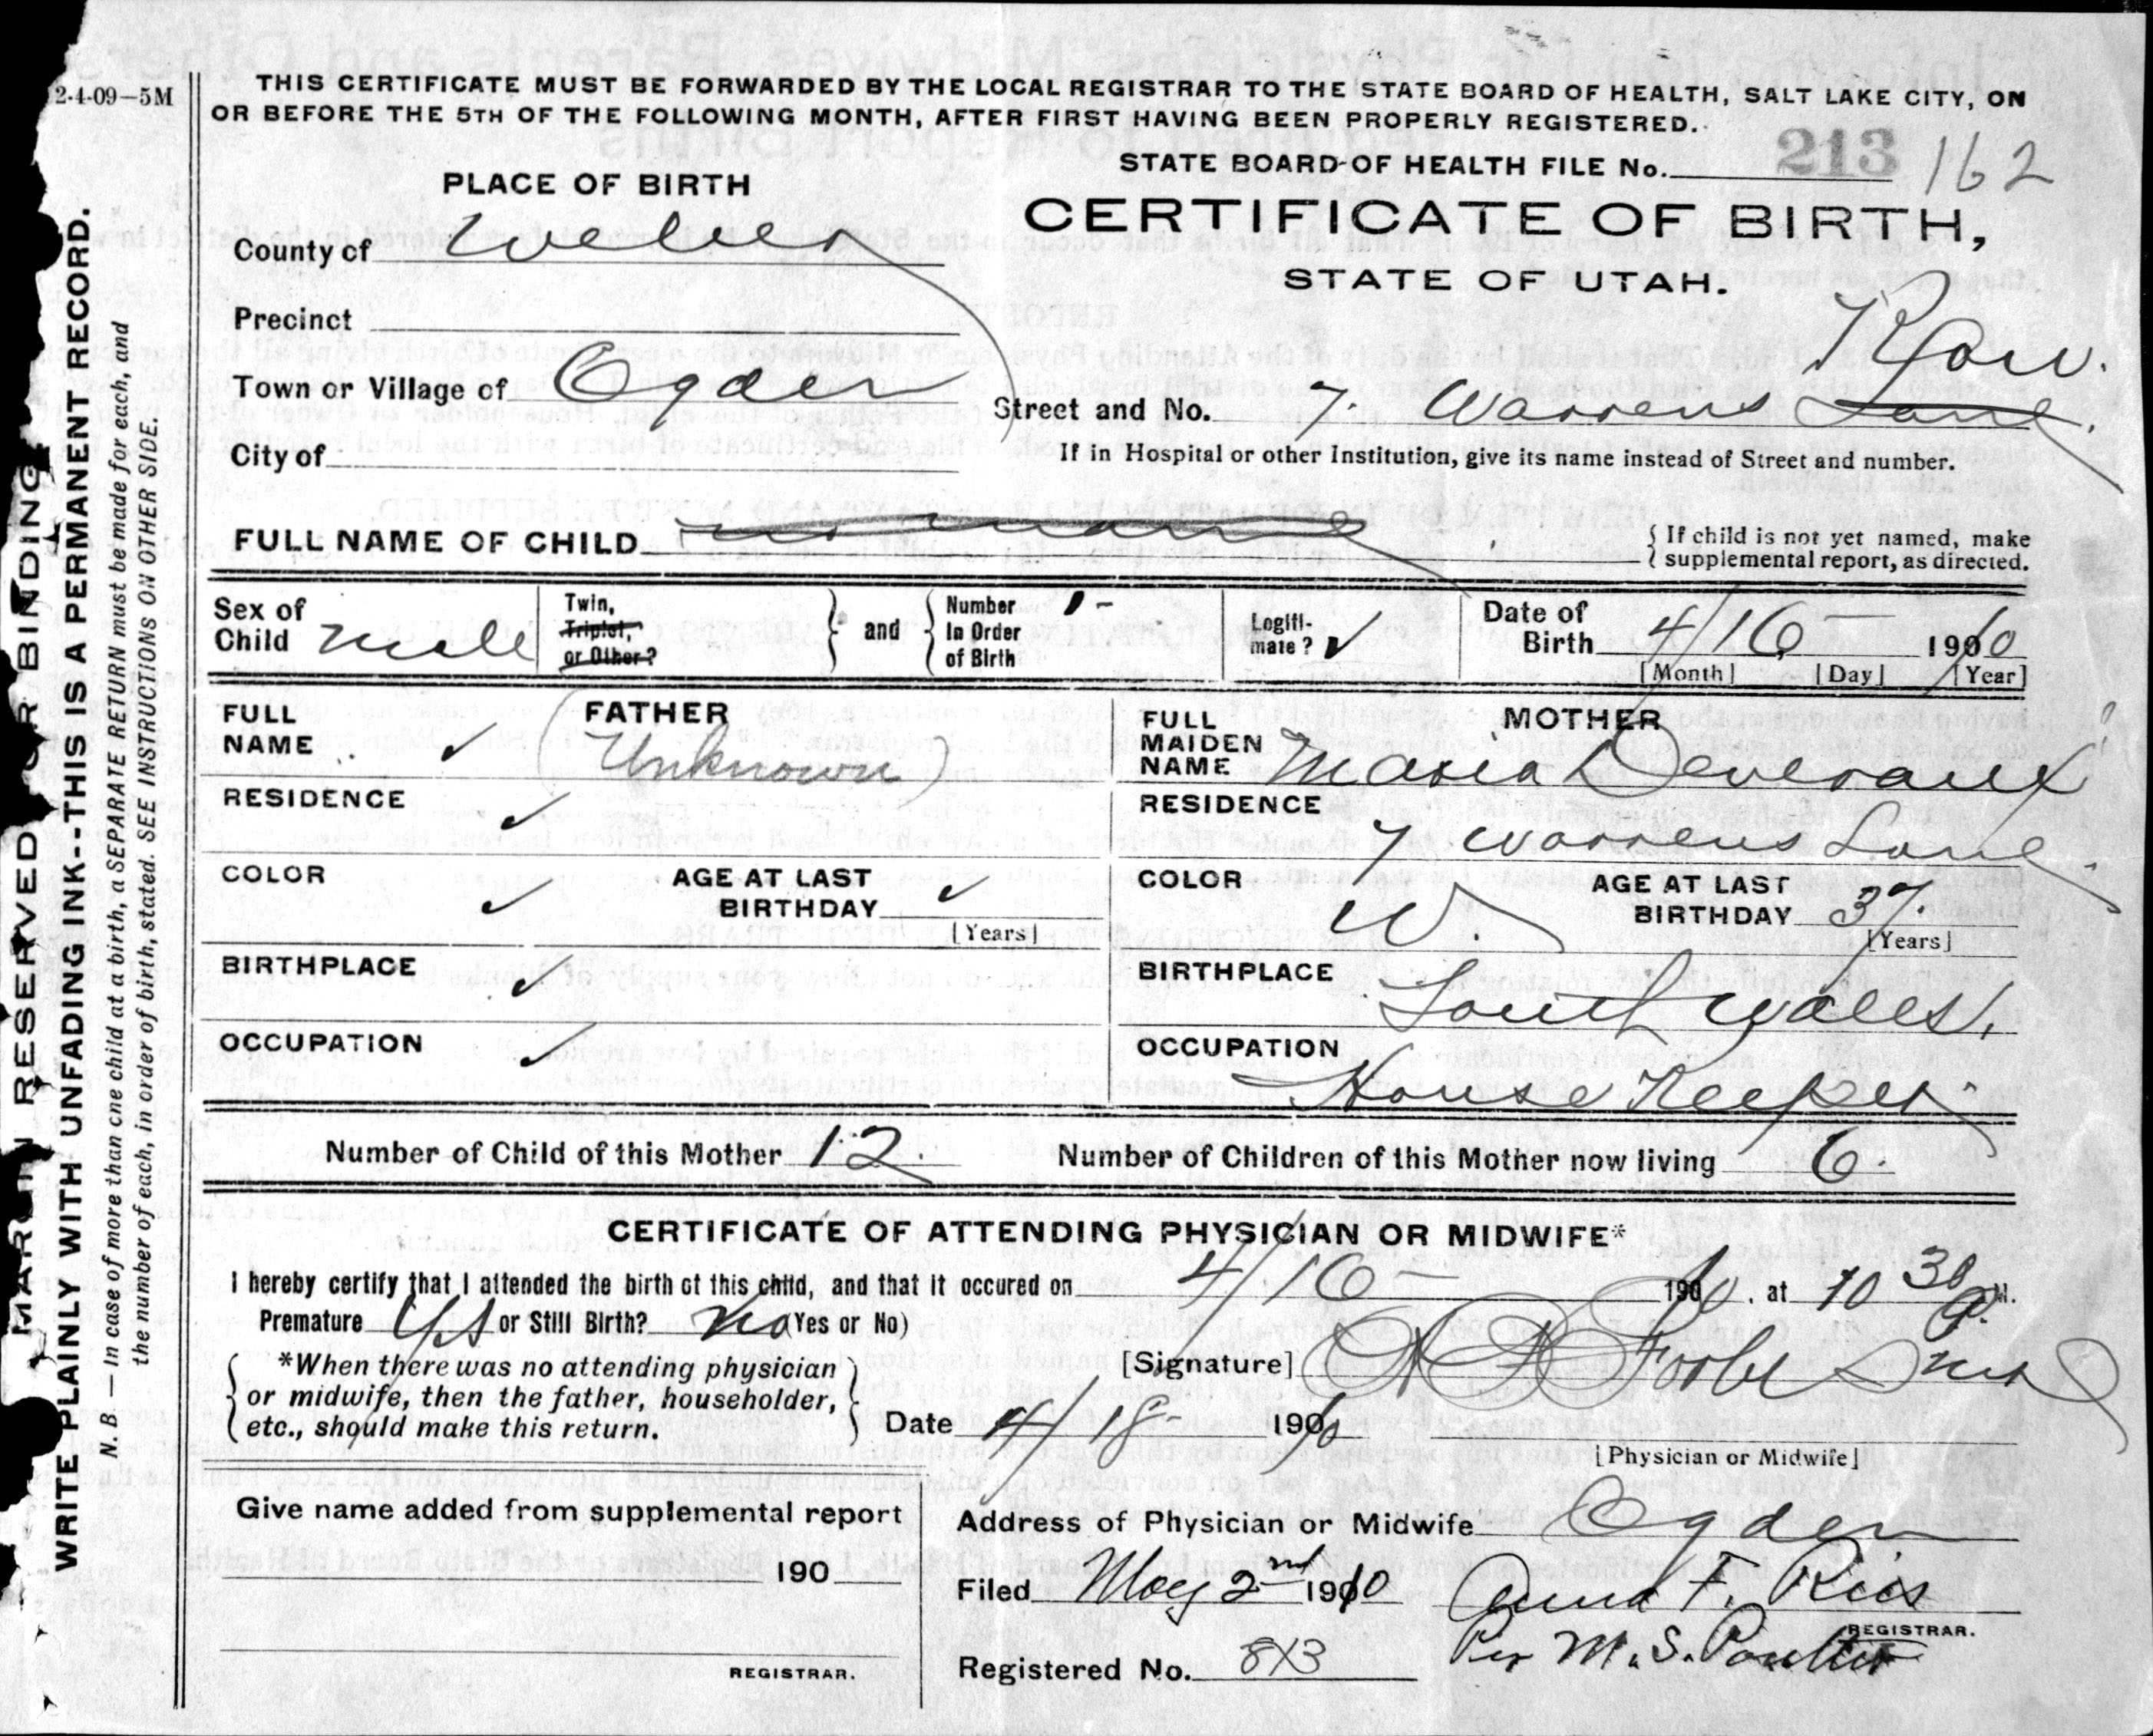 2-4-09—5M
THIS CERTIFICATE MUST BE FORWARDED BY THE LOCAL REGISTRAR TO THE STATE BOARD OF HEALTH, SALT LAKE CITY, ON
OR BEFORE THE 5TH OF THE FOLLOWING MONTH, AFTER FIRST HAVING BEEN PROPERLY REGISTERED.
STATE BOARD OF HEALTH FILE No. 213 162
PLACE OF BIRTH
CERTIFICATE OF BIRTH,
STATE OF UTAH.
County of Weber
Precinct
Town or Village of Ogden
Row.
Street and No. 7. Warrens Lane.
City of
If in Hospital or other Institution, give its name instead of Street and number.
FULL NAME OF CHILD no name
{ If child is not yet named, make
{ supplemental report, as directed.
Sex of Child male
Twin, Triplet, or Other?
and
Number In Order of Birth 1-
Legiti-mate? ✓
Date of Birth 4/16— 1910
[Month] [Day] [Year]
FATHER
FULL NAME ✓ (Unknown)
RESIDENCE ✓
COLOR ✓
AGE AT LAST BIRTHDAY ✓
[Years]
BIRTHPLACE ✓
OCCUPATION ✓
MOTHER
FULL MAIDEN NAME Maria Deveraux
RESIDENCE
7 Warrens Lane.
COLOR W.
AGE AT LAST BIRTHDAY 37.
[Years]
BIRTHPLACE
South Wales.
OCCUPATION
House Keeper
Number of Child of this Mother 12.
Number of Children of this Mother now living 6.
CERTIFICATE OF ATTENDING PHYSICIAN OR MIDWIFE*
I hereby certify that I attended the birth of this child, and that it occured on 4/16— 1910, at 10 30 a. M.
Premature Yes or Still Birth? No (Yes or No)
*When there was no attending physician
or midwife, then the father, householder,
etc., should make this return.
[Signature]
Date 4/18- 1910
[Physician or Midwife]
Give name added from supplemental report
190
REGISTRAR.
Address of Physician or Midwife Ogden
Filed May 2nd 1910 Anna F. Ries
REGISTRAR.
Per M. S. Poulter
Registered No. 813
MARGIN RESERVED FOR BINDING
WRITE PLAINLY WITH UNFADING INK--THIS IS A PERMANENT RECORD.
N. B. — In case of more than one child at a birth, a SEPARATE RETURN must be made for each, and
the number of each, in order of birth, stated. SEE INSTRUCTIONS ON OTHER SIDE.